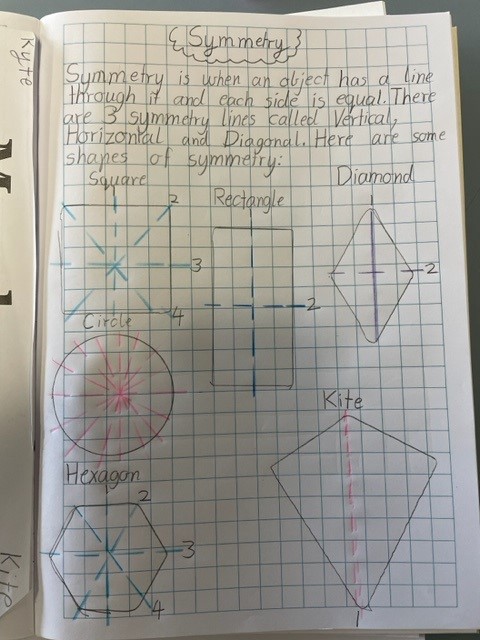 Symmetry
Symmetry is when an object has a line
through it and each side is equal. There
are 3 symmetry lines called Vertical,
Horizontal and Diagonal. Here are some
shapes of symmetry:
Square
Rectangle
Diamond
1
2
3
4
2
1
2
Circle
Kite
1
Hexagon
2
3
4
Kyte
Kite